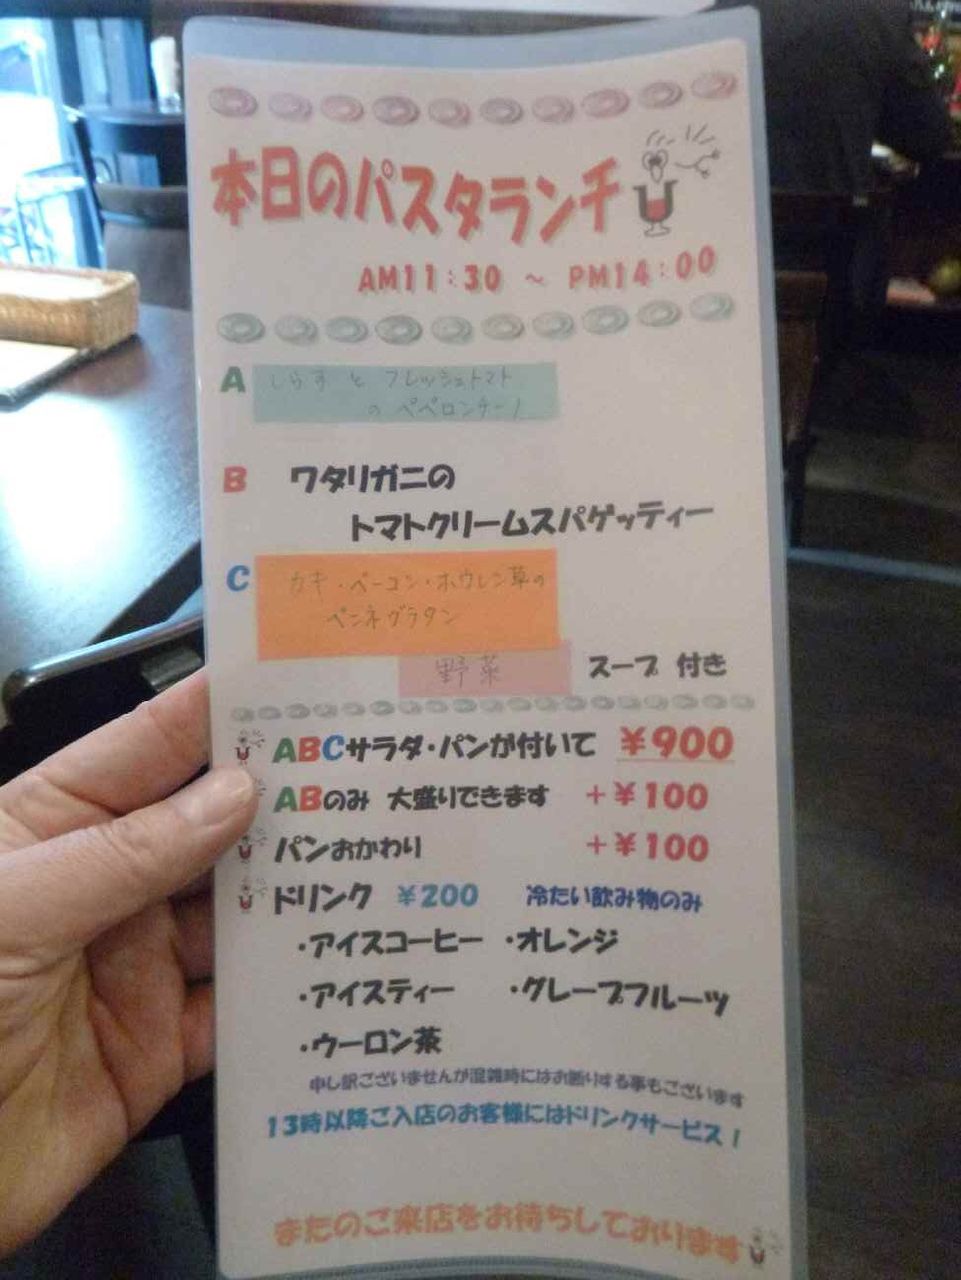 本日のパスタランチ
AM11:30 ～ PM14:00
A しらすとフレッシュトマト
のペペロンチーノ
B ワタリガニの
トマトクリームスパゲッティー
C カキ・ベーコン・ホウレン草の
ペンネグラタン
野菜 スープ 付き
ABCサラダ・パンが付いて ¥900
ABのみ 大盛りできます +¥100
パンおかわり +¥100
ドリンク ¥200 冷たい飲み物のみ
・アイスコーヒー ・オレンジ
・アイスティー ・グレープフルーツ
・ウーロン茶
申し訳ございませんが混雑時にはお断りする事もございます
13時以降ご入店のお客様にはドリンクサービス！
またのご来店をお待ちしております